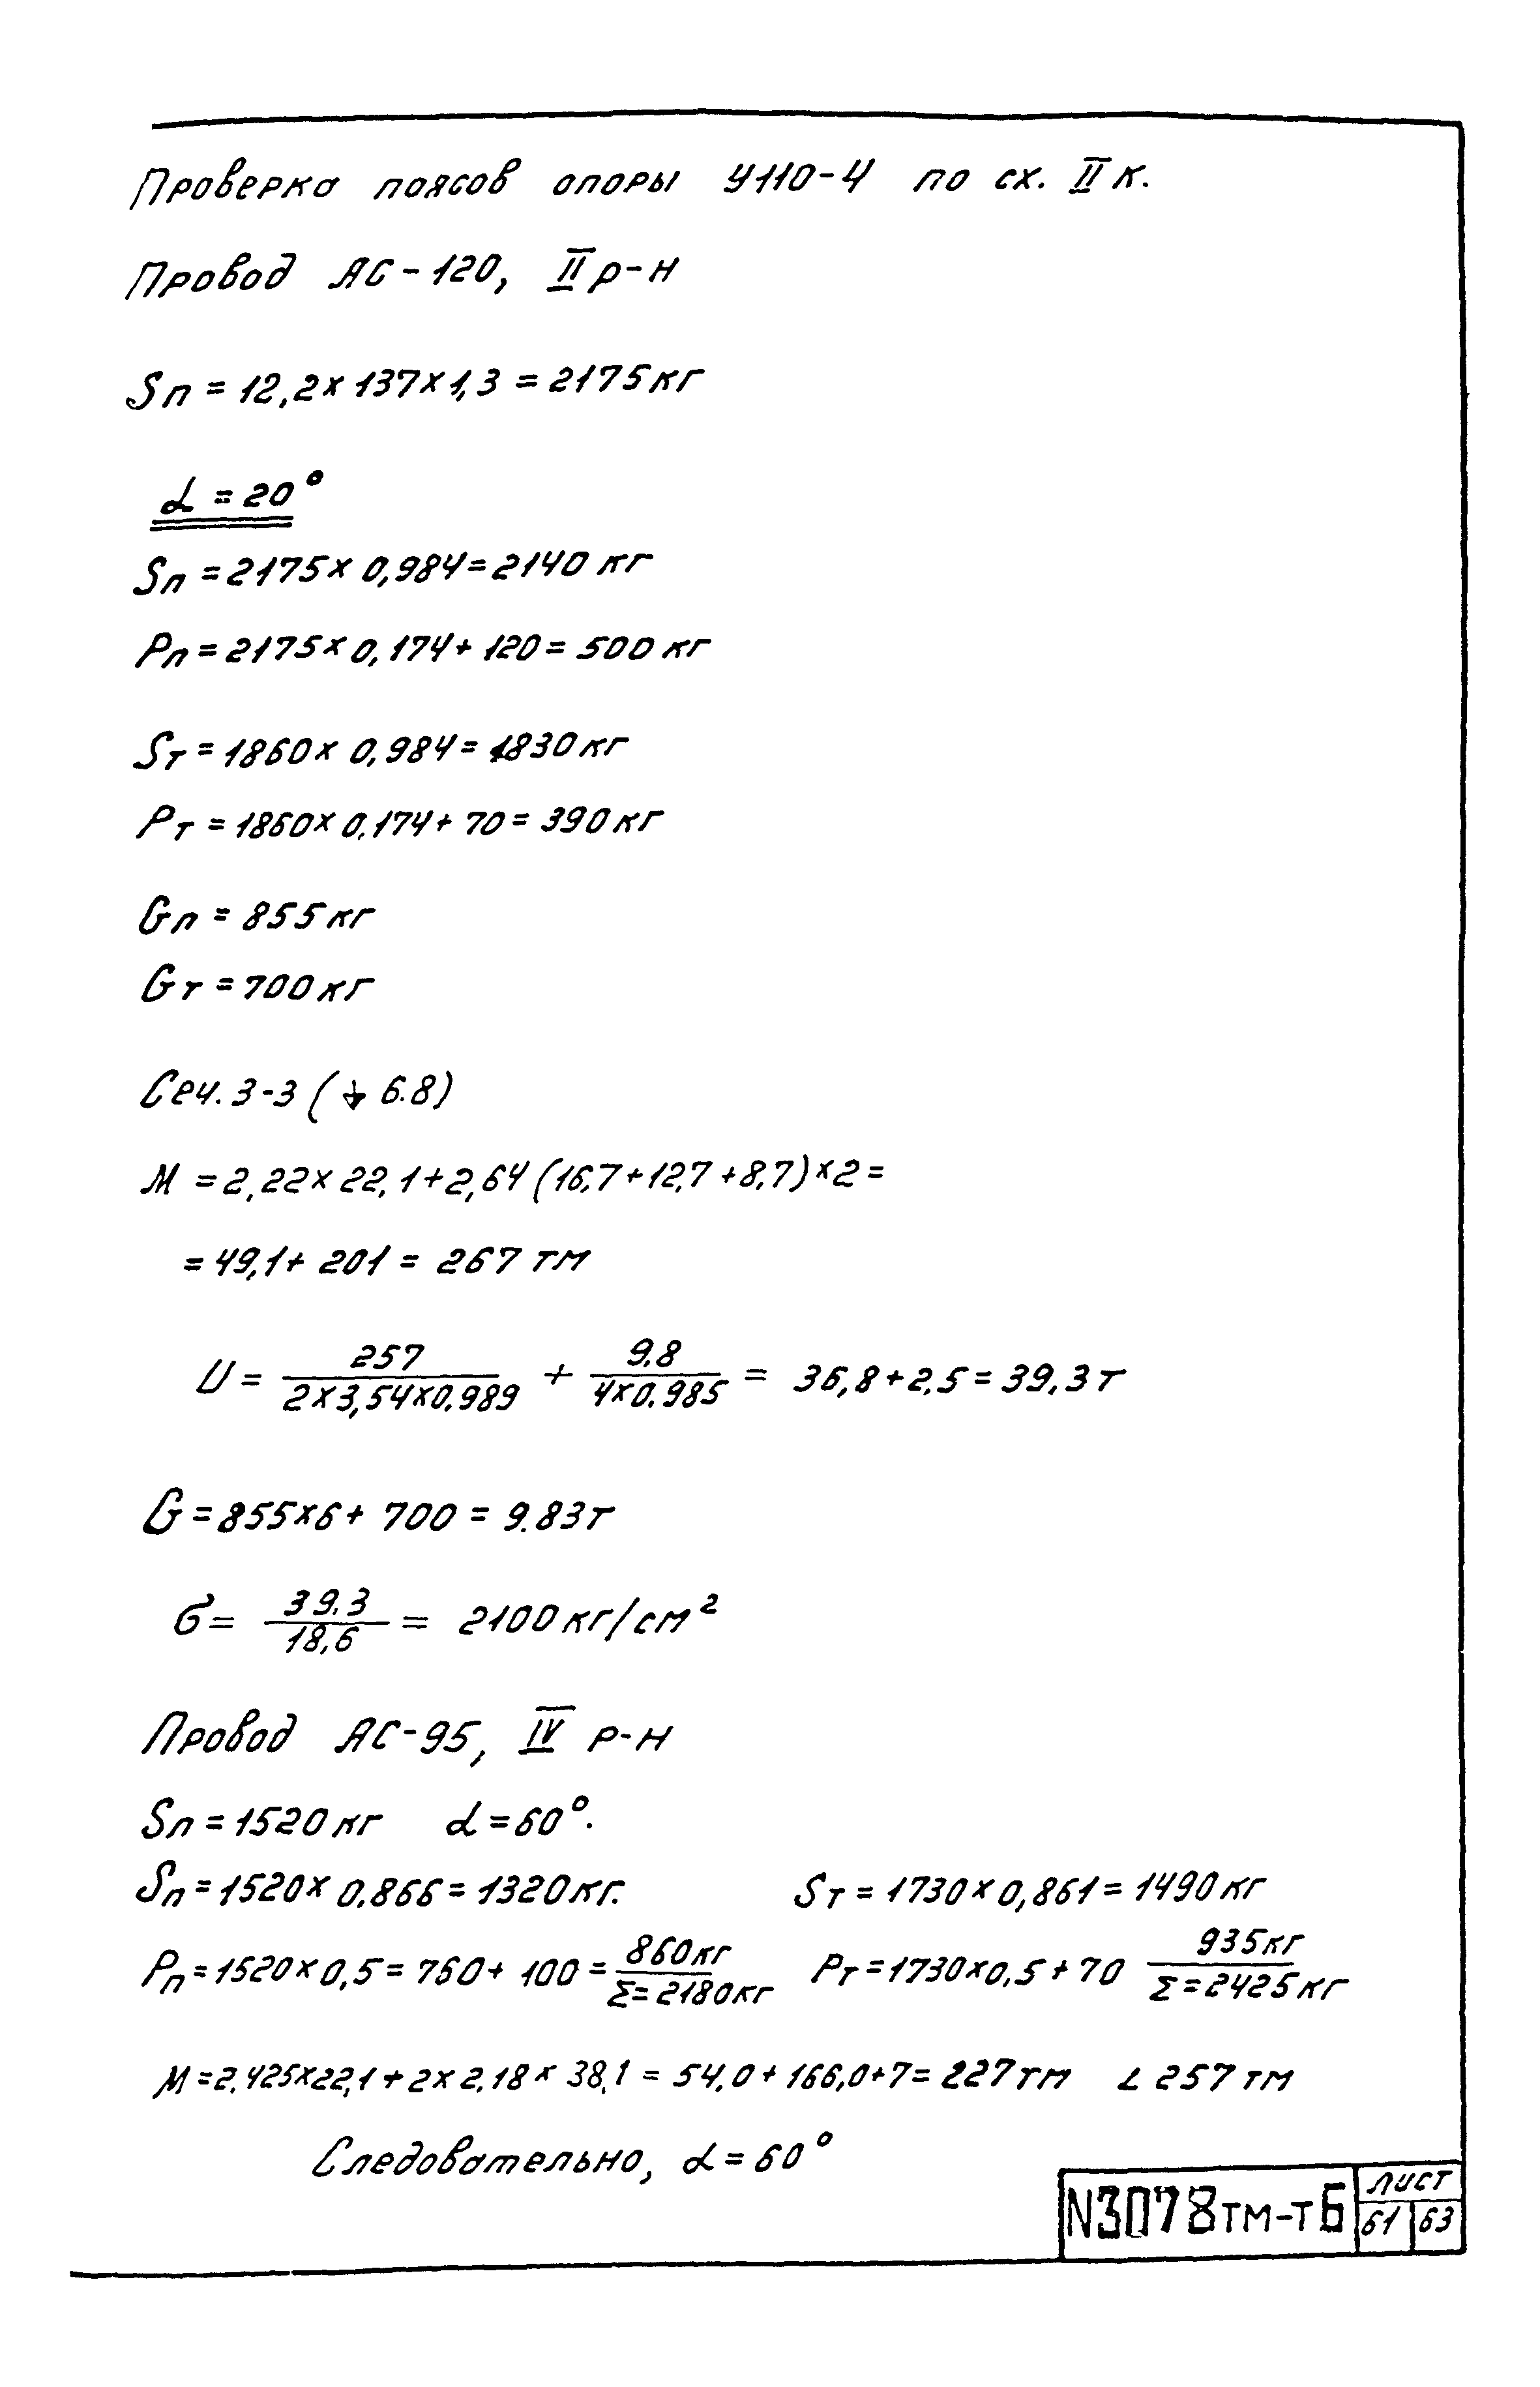 Проверка поясов опоры У110-4 по сх. II к.
Провод АС-120, II р-н
Sп = 12,2 × 137 × 1,3 = 2175 кг
α = 20°
Sп = 2175 × 0,984 = 2140 кг
Pп = 2175 × 0,174 + 120 = 500 кг
Sт = 1860 × 0,984 = 1830 кг
Pт = 1860 × 0,174 + 70 = 390 кг
Gп = 855 кг
Gт = 700 кг
Сеч. 3-3 (↓ 6.8)
M = 2,22 × 22,1 + 2,64 (16,7 + 12,7 + 8,7) × 2 =
= 49,1 + 201 = 267 тм
U = 257 / 2 × 3,54 × 0.989 + 9.8 / 4 × 0.985 = 36,8 + 2,5 = 39,3 т
G = 855 × 6 + 700 = 9.83 т
σ = 39.3 / 18,6 = 2100 кг/см²
Провод АС-95, IV р-н
Sп = 1520 кг α = 60°.
Sп = 1520 × 0.866 = 1320 кг. Sт = 1730 × 0,861 = 1490 кг
Pп = 1520 × 0,5 = 760 + 100 = 860 кг / Σ = 2180 кг Pт = 1730 × 0,5 + 70 935 кг / Σ = 2425 кг
M = 2.425 × 22,1 + 2 × 2.18 × 38,1 = 54,0 + 166,0 + 7 = 227 тм ∠ 257 тм
Следовательно, α = 60°
N3078тм-т6 лист
61 63